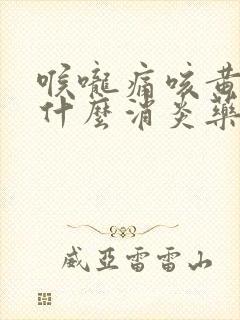 喉嚨痛咳黃
什麼消炎藥
威亞雷雷山